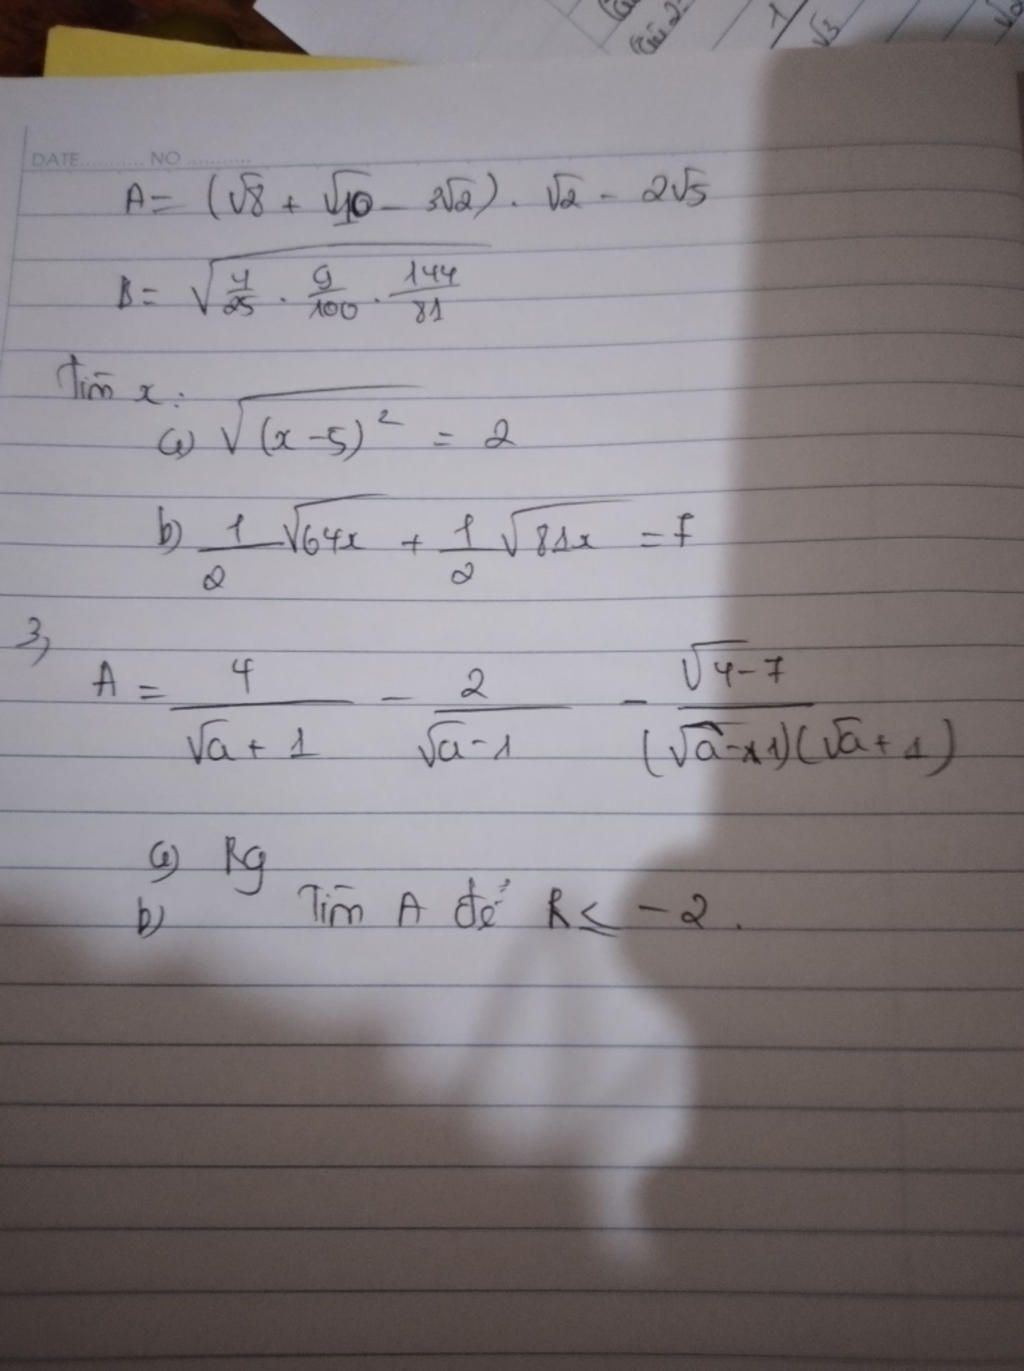 DATE........... NO ...........
A = (√8 + √10 - 3√2) . √2 - 2√5
B = √(4/25 . 9/100 . 144/81)
Tìm x :
a) √(x-5)² = 2
b) 1/2 √64x + 1/2 √81x = 7
3,
A = 4/(√a + 1) - 2/(√a - 1) - (√4 - 7)/((√a - 1)(√a + 1))
a) Rg
b) Tìm A để R ≤ -2.